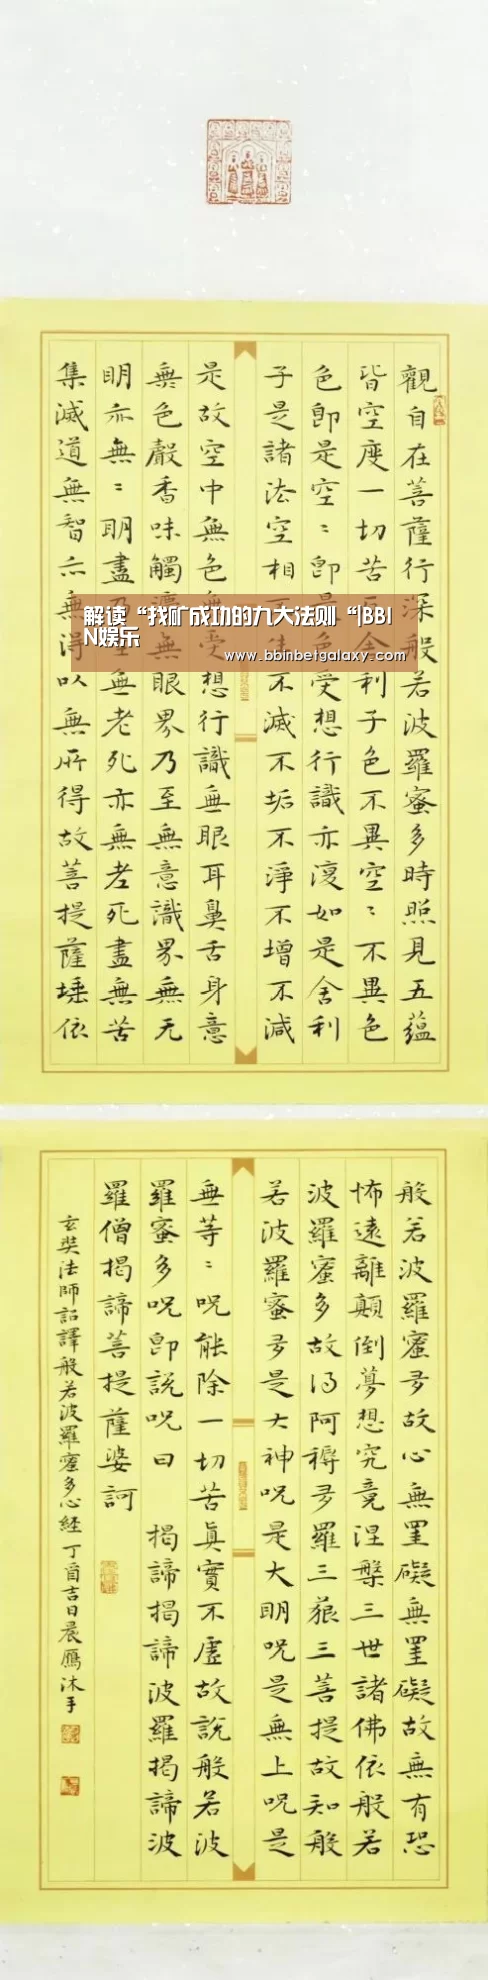 解读“找矿成功的九大法则“|BBI
N娱乐
www.bbinbetgalaxy.com
觀自在菩薩行深般若波羅蜜多時照見五蘊
皆空度一切苦厄舍利子色不異空〻不異色
色即是空〻即是色受想行識亦復如是舍利
子是諸法空相不生不滅不垢不淨不增不減
是故空中無色無受想行識無眼耳鼻舌身意
無色聲香味觸法無眼界乃至無意識界無无
明亦無〻明盡乃至無老死亦無老死盡無苦
集滅道無智亦無得以無所得故菩提薩埵依
般若波羅蜜多故心無罣礙無罣礙故無有恐
怖遠離顛倒夢想究竟涅槃三世諸佛依般若
波羅蜜多故得阿耨多羅三藐三菩提故知般
若波羅蜜多是大神咒是大明咒是無上咒是
無等〻咒能除一切苦真實不虛故說般若波
羅蜜多咒即說咒曰 揭諦揭諦波羅揭諦波
羅僧揭諦菩提薩婆訶
玄奘法師詔譯般若波羅蜜多心經 丁酉吉日晨雁沐手